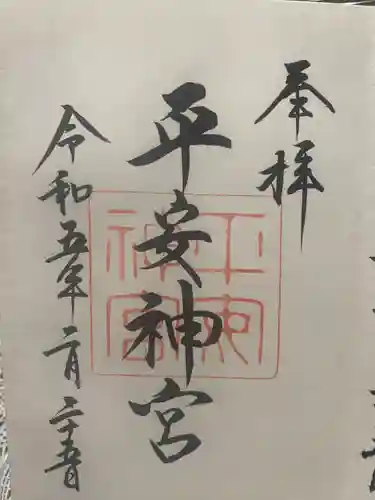 奉拝
平安神宮
平安神宮
令和五年二月二十五日